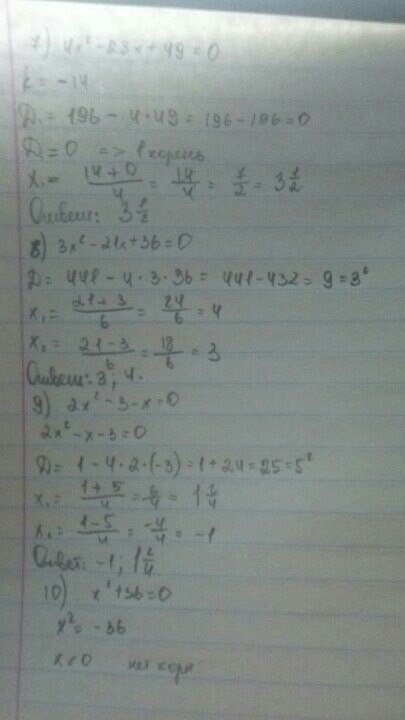 7) 4x² - 28x + 49 = 0
k = -14
D₁ = 196 - 4·49 = 196 - 196 = 0
D₁ = 0 => 1 корень
x₁ = (14+0)/4 = 14/4 = 7/2 = 3 1/2
Ответ: 3 1/2
8) 3x² - 21x + 36 = 0
D = 441 - 4·3·36 = 441 - 432 = 9 = 3²
x₁ = (21+3)/6 = 24/6 = 4
x₂ = (21-3)/6 = 18/6 = 3
Ответ: 3; 4.
9) 2x² - 3 - x = 0
2x² - x - 3 = 0
D = 1 - 4·2·(-3) = 1 + 24 = 25 = 5²
x₁ = (1+5)/4 = 6/4 = 1 2/4
x₂ = (1-5)/4 = -4/4 = -1
Ответ: -1; 1 2/4
10) x² + 36 = 0
x² = -36
x < 0 нет корн